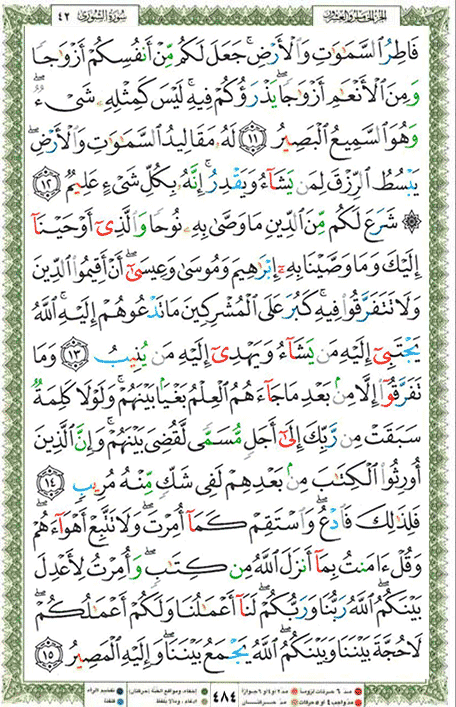 سورة الشورى ٤٢
الجزء الخامس والعشرون
فَاطِرُ السَّمَٰوَٰتِ وَالْأَرْضِ ۚ جَعَلَ لَكُم مِّنْ أَنفُسِكُمْ أَزْوَٰجًا
وَمِنَ الْأَنْعَٰمِ أَزْوَٰجًا ۖ يَذْرَؤُكُمْ فِيهِ ۚ لَيْسَ كَمِثْلِهِۦ شَىْءٌ ۖ
وَهُوَ السَّمِيعُ الْبَصِيرُ ١١ لَهُۥ مَقَالِيدُ السَّمَٰوَٰتِ وَالْأَرْضِ ۖ
يَبْسُطُ الرِّزْقَ لِمَن يَشَآءُ وَيَقْدِرُ ۚ إِنَّهُۥ بِكُلِّ شَىْءٍ عَلِيمٌ ١٢
۞ شَرَعَ لَكُم مِّنَ الدِّينِ مَا وَصَّىٰ بِهِۦ نُوحًا وَالَّذِىٓ أَوْحَيْنَآ
إِلَيْكَ وَمَا وَصَّيْنَا بِهِۦٓ إِبْرَٰهِيمَ وَمُوسَىٰ وَعِيسَىٰٓ ۖ أَنْ أَقِيمُوا۟ الدِّينَ
وَلَا تَتَفَرَّقُوا۟ فِيهِ ۚ كَبُرَ عَلَى الْمُشْرِكِينَ مَا تَدْعُوهُمْ إِلَيْهِ ۚ اللَّهُ
يَجْتَبِىٓ إِلَيْهِ مَن يَشَآءُ وَيَهْدِىٓ إِلَيْهِ مَن يُنِيبُ ١٣ وَمَا
تَفَرَّقُوٓا۟ إِلَّا مِنۢ بَعْدِ مَا جَآءَهُمُ الْعِلْمُ بَغْيًۢا بَيْنَهُمْ ۚ وَلَوْلَا كَلِمَةٌ
سَبَقَتْ مِن رَّبِّكَ إِلَىٰٓ أَجَلٍ مُّسَمًّى لَّقُضِىَ بَيْنَهُمْ ۚ وَإِنَّ الَّذِينَ
أُورِثُوا۟ الْكِتَٰبَ مِنۢ بَعْدِهِمْ لَفِى شَكٍّ مِّنْهُ مُرِيبٍ ١٤
فَلِذَٰلِكَ فَادْعُ ۖ وَاسْتَقِمْ كَمَآ أُمِرْتَ ۖ وَلَا تَتَّبِعْ أَهْوَآءَهُمْ ۖ
وَقُلْ ءَامَنتُ بِمَآ أَنزَلَ اللَّهُ مِن كِتَٰبٍ ۖ وَأُمِرْتُ لِأَعْدِلَ
بَيْنَكُمُ ۖ اللَّهُ رَبُّنَا وَرَبُّكُمْ ۖ لَنَآ أَعْمَٰلُنَا وَلَكُمْ أَعْمَٰلُكُمْ ۖ
لَا حُجَّةَ بَيْنَنَا وَبَيْنَكُمُ ۖ اللَّهُ يَجْمَعُ بَيْنَنَا ۖ وَإِلَيْهِ الْمَصِيرُ ١٥
٤٨٤